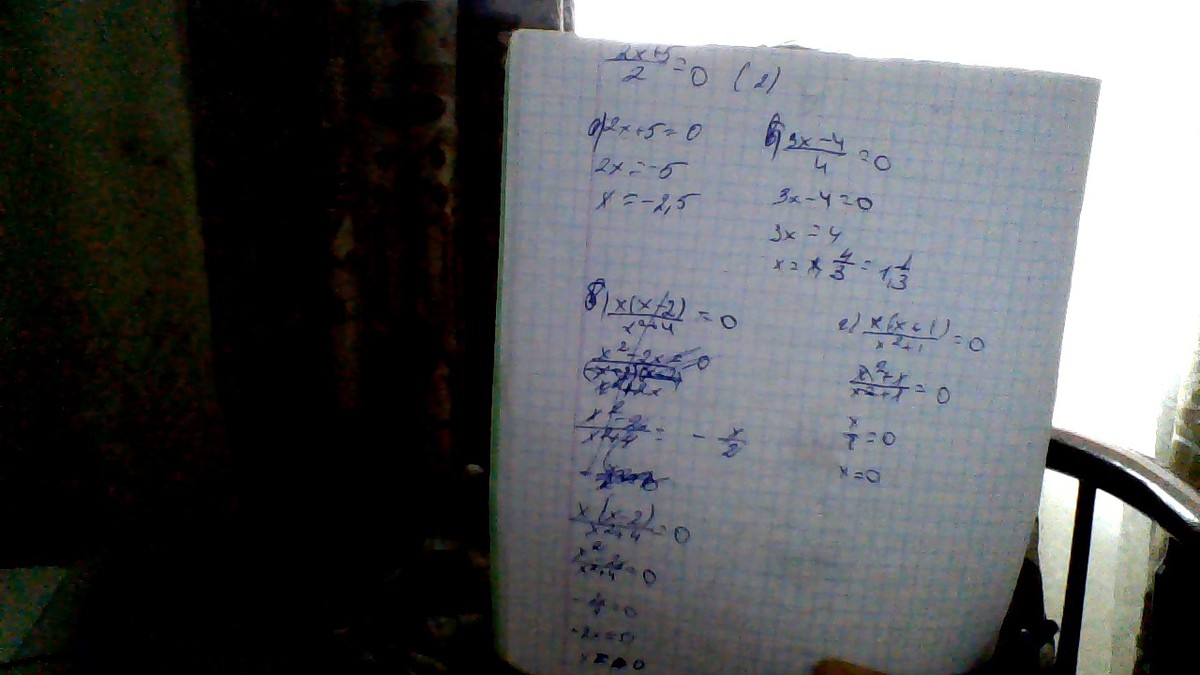 (2x+5)/2 = 0 (2)
а) 2x+5=0
2x=-5
x=-2,5
б) (3x-4)/4 = 0
3x-4=0
3x=4
x= 4/3 = 1,1/3
в) x(x-2)/(x²+4) = 0
-x/2
x(x-2)/(x²+4) = 0
(x²-2x)/(x²+4) = 0
-2x=0
г) x(x+1)/(x²+1) = 0
(x²+x)/(x²+1) = 0
x/1 = 0
x=0